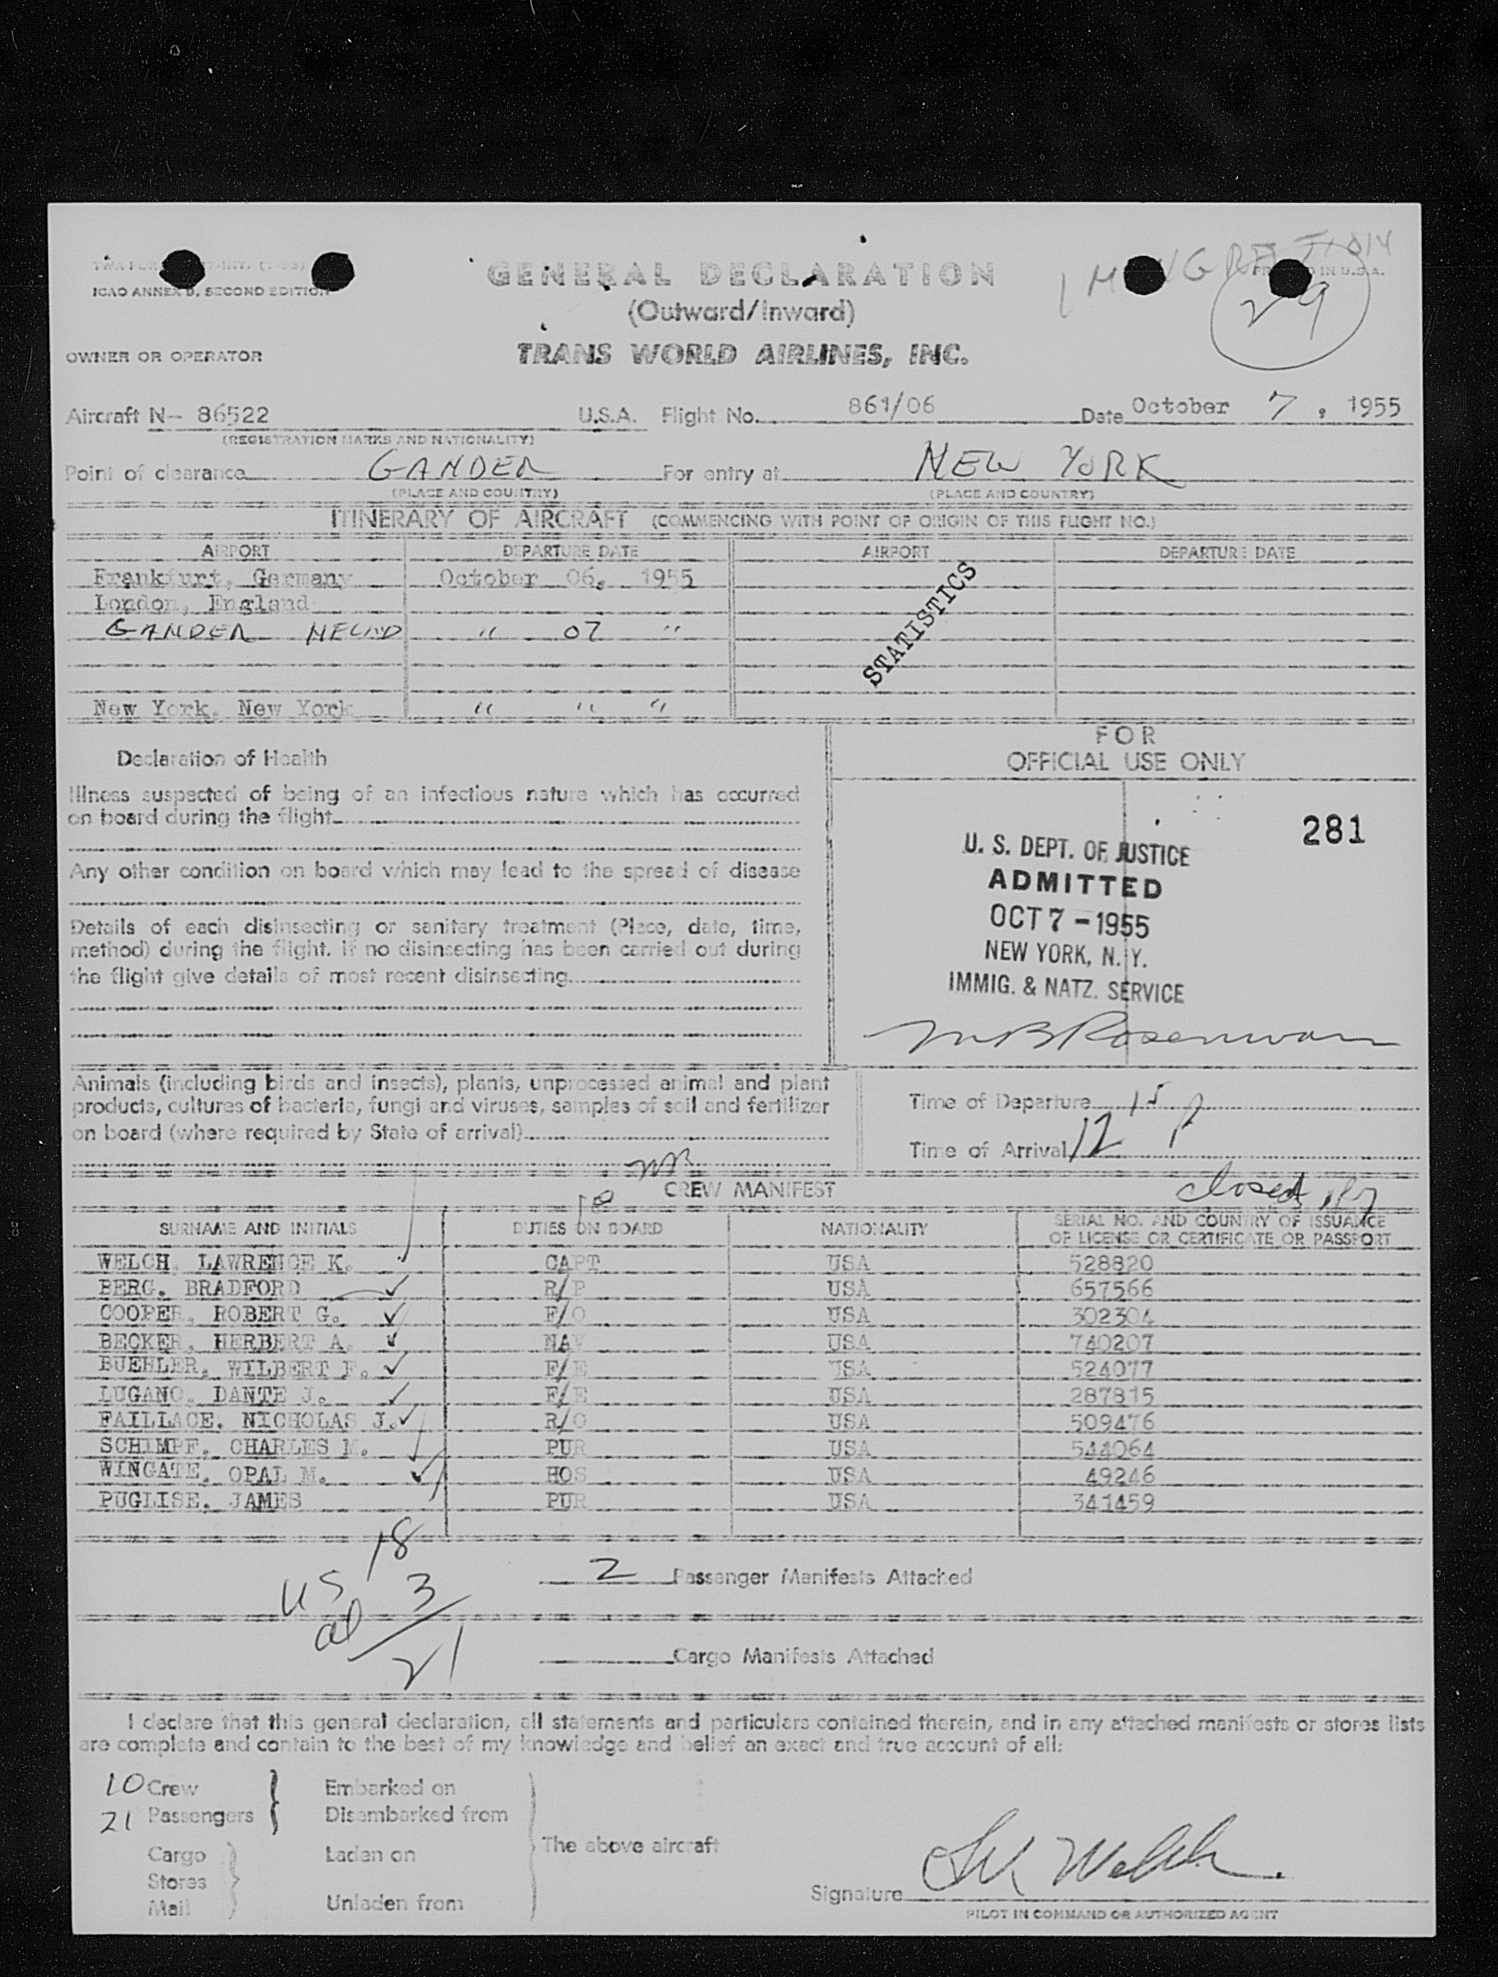 ICAO ANNEX 9, SECOND EDITION
GENERAL DECLARATION
(Outward/Inward)
29
OWNER OR OPERATOR
TRANS WORLD AIRLINES, INC.
Aircraft N- 86522 U.S.A. Flight No. 861/06 Date October 7, 1955
(REGISTRATION MARKS AND NATIONALITY)
Point of clearance GANDER For entry at NEW YORK
(PLACE AND COUNTRY) (PLACE AND COUNTRY)
ITINERARY OF AIRCRAFT (COMMENCING WITH POINT OF ORIGIN OF THIS FLIGHT NO.)
AIRPORT DEPARTURE DATE AIRPORT DEPARTURE DATE
Frankfurt, Germany October 06, 1955
London, England
GANDER NFLND " 07 "
STATISTICS
New York, New York " " "
Declaration of Health
Illness suspected of being of an infectious nature which has occurred
on board during the flight
Any other condition on board which may lead to the spread of disease
Details of each disinsecting or sanitary treatment (Place, date, time,
method) during the flight. If no disinsecting has been carried out during
the flight give details of most recent disinsecting.
FOR
OFFICIAL USE ONLY
281
U. S. DEPT. OF JUSTICE
ADMITTED
OCT 7 - 1955
NEW YORK, N. Y.
IMMIG. & NATZ. SERVICE
Animals (including birds and insects), plants, unprocessed animal and plant
products, cultures of bacteria, fungi and viruses, samples of soil and fertilizer
on board (where required by State of arrival)
Time of Departure
Time of Arrival 12
CREW MANIFEST
closed
SURNAME AND INITIALS DUTIES ON BOARD NATIONALITY SERIAL NO. AND COUNTRY OF ISSUANCE
OF LICENSE OR CERTIFICATE OR PASSPORT
WELCH, LAWRENCE K. CAPT USA 528820
BERG, BRADFORD R/P USA 657566
COOPER, ROBERT G. F/O USA 302304
BECKER, HERBERT A. NAV USA 740207
BUEHLER, WILBERT F. F/E USA 524077
LUGANO, DANTE J. F/E USA 287815
FAILLACE, NICHOLAS J. R/O USA 509476
SCHIMPF, CHARLES M. PUR USA 544064
WINGATE, OPAL M. HOS USA 49246
PUGLISE, JAMES PUR USA 341459
US 18
al 3
21
2 Passenger Manifests Attached
Cargo Manifests Attached
I declare that this general declaration, all statements and particulars contained therein, and in any attached manifests or stores lists
are complete and contain to the best of my knowledge and belief an exact and true account of all:
10 Crew Embarked on
21 Passengers Disembarked from
Cargo Laden on
The above aircraft
Stores
Mail Unladen from
Signature LK Welch
PILOT IN COMMAND OR AUTHORIZED AGENT